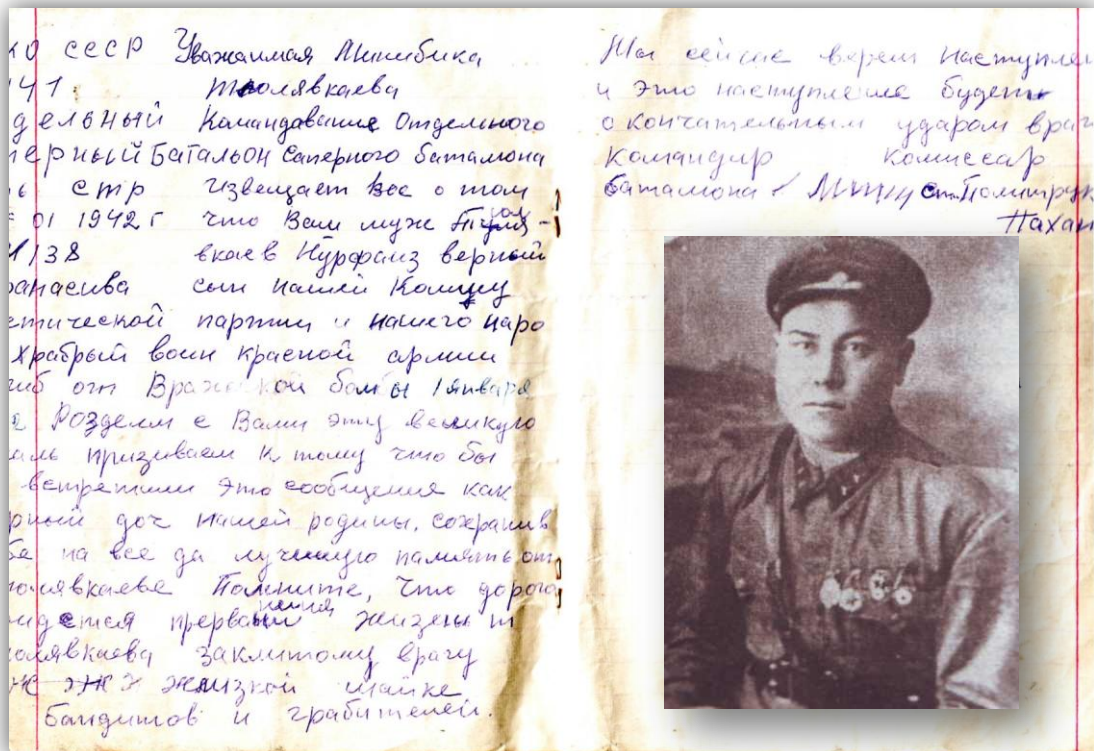 КО СССР Уважаимая Минибика
41 Толявкаева
дельный Командавание Отдельного
перный Батальон Саперного баталиона
ь стр Извещает вас о том
01 1942 г что Вам муж
/38 вкаев Нурфаиз верный
сын нашей Комму
стической партии и нашего наро
Храбрый воин красной армии
иб от Вражеской бомбы 1 января
Розделм с Вами эту великую
аль призиваем к тому что бы
встретили это сообщения как
рный доч нашей родины, сохранив
бе на все да лучшую память от
толявкаеве Помните, что дорого
идется прерванния жизень т
олявкаева заклитому врагу
шайке
бандитов и грабителей.
Мы сейчас верем наступлен
и это наступление будет
окончательным ударом враг
Командир комиссар
баталиона ст. Политрук
Пахан